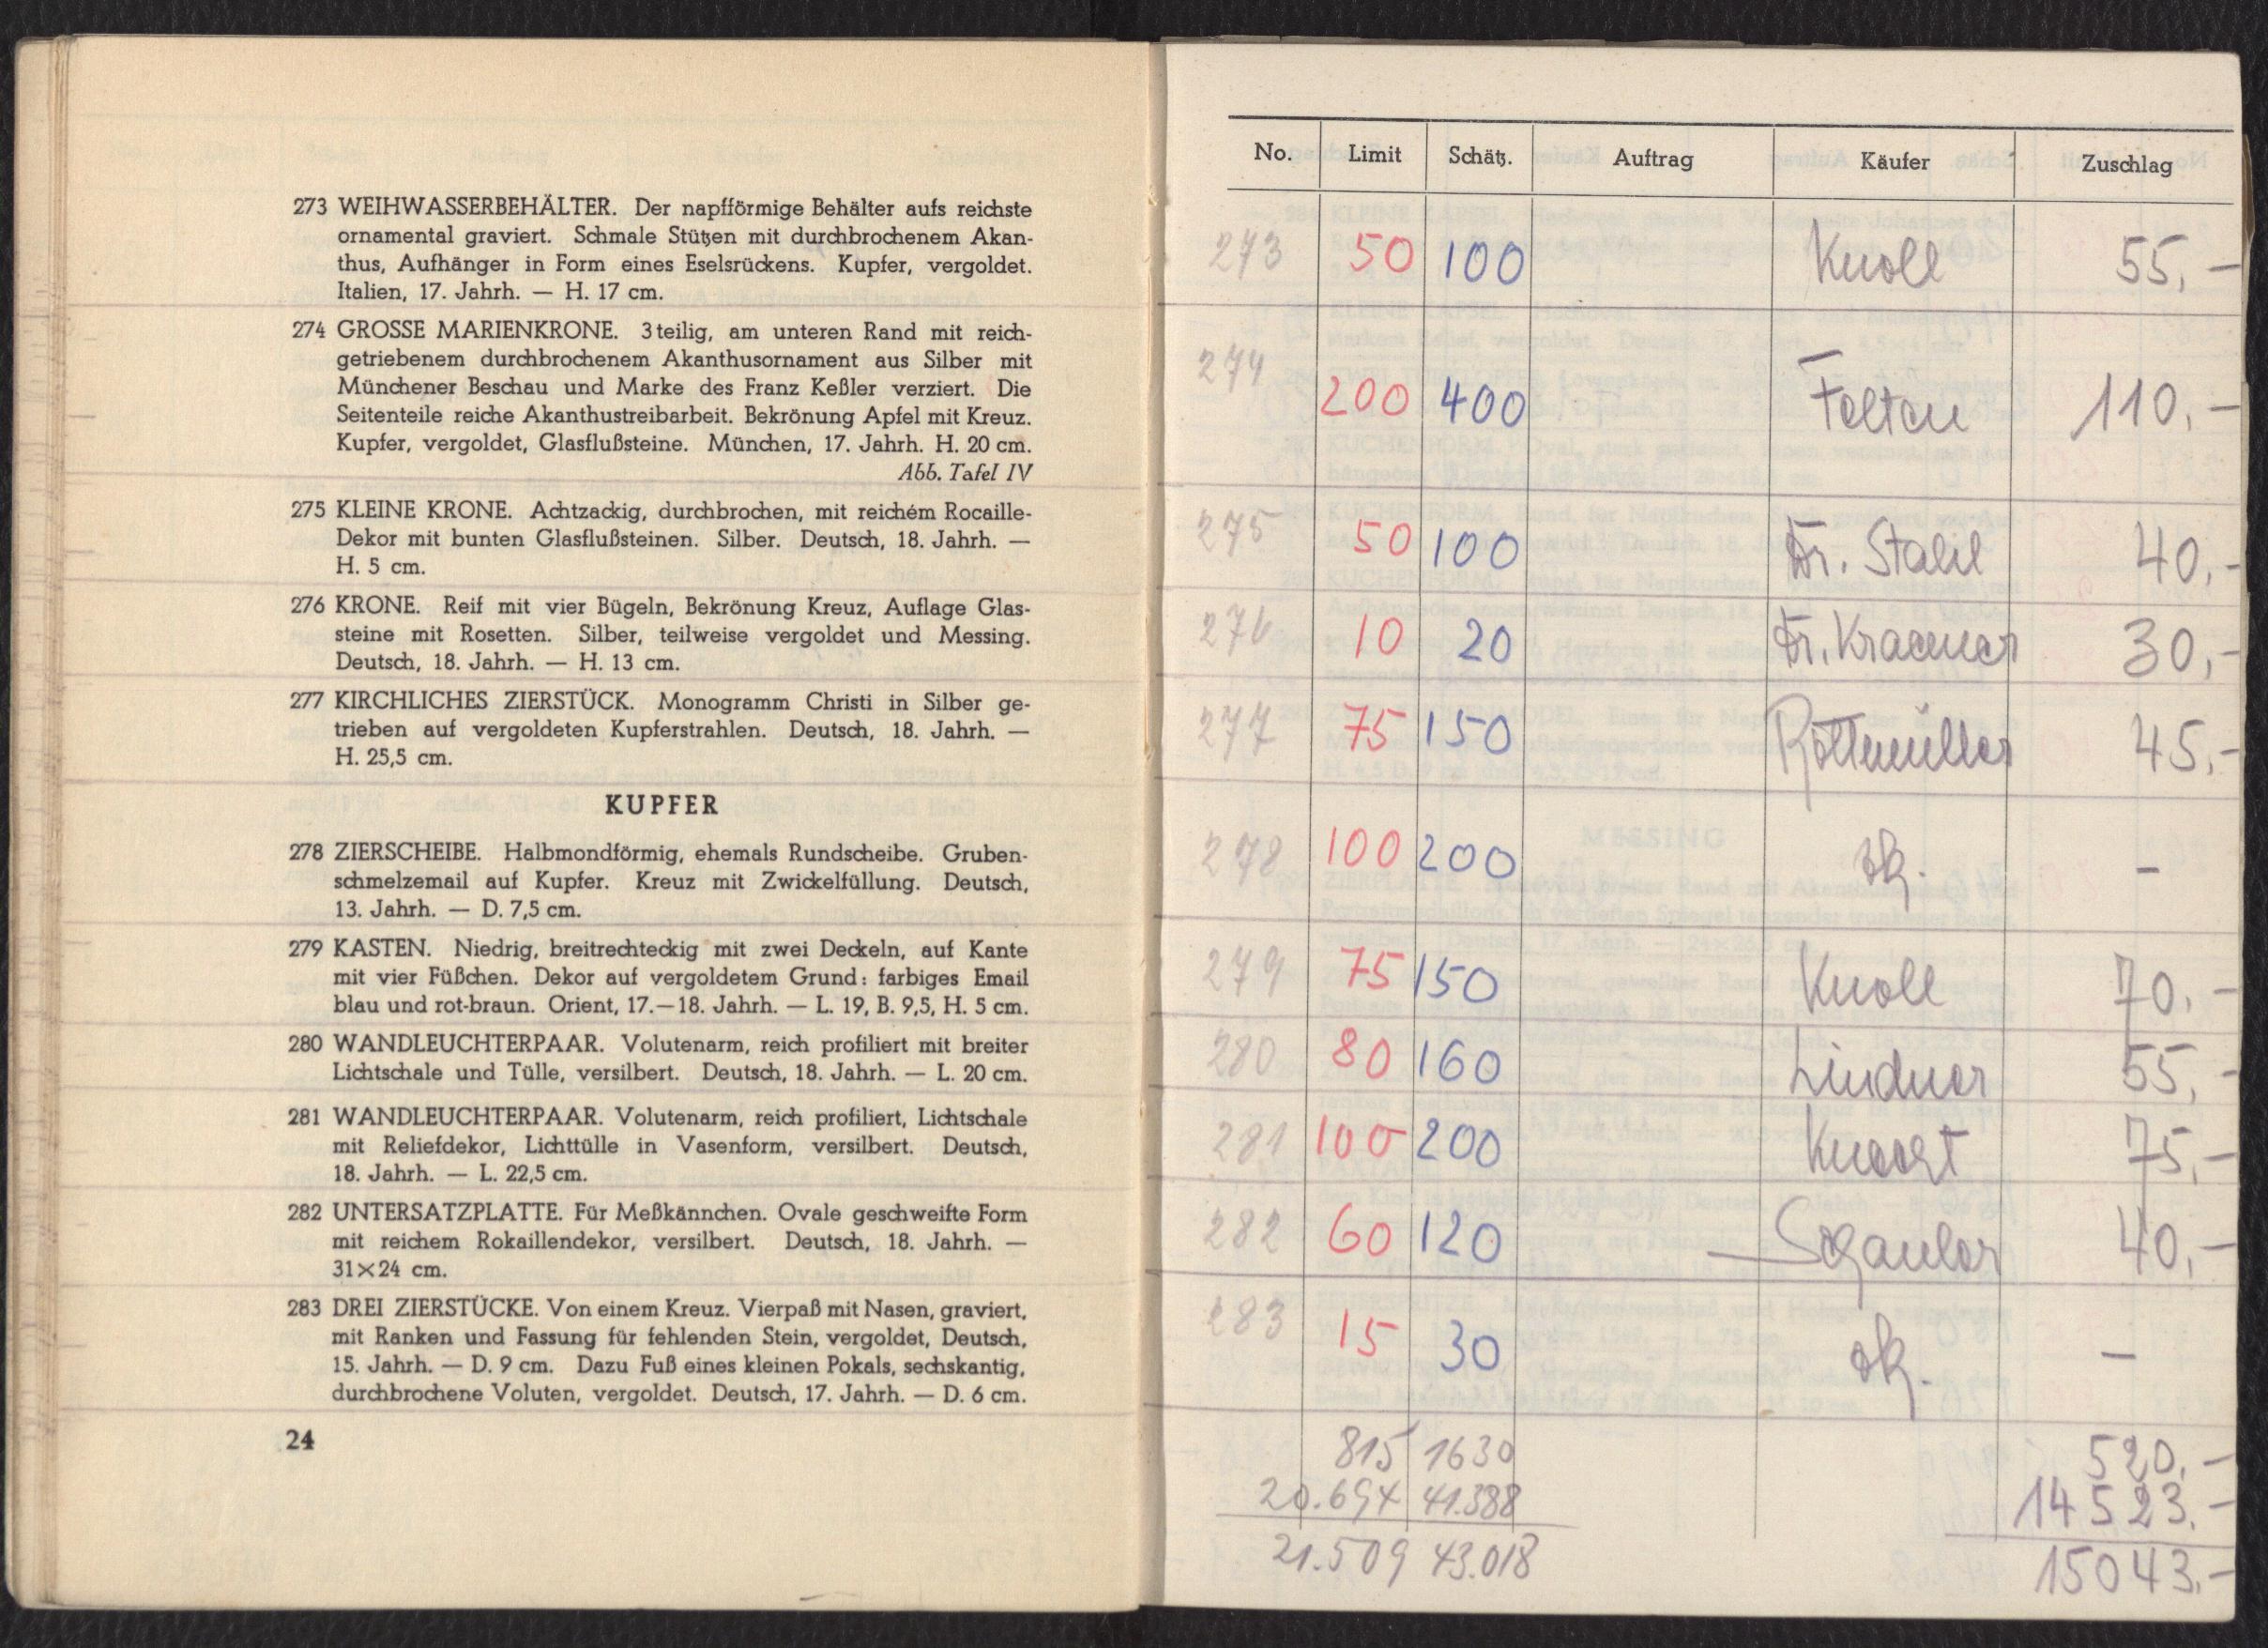 273 WEIHWASSERBEHÄLTER. Der napfförmige Behälter aufs reichste
ornamental graviert. Schmale Stützen mit durchbrochenem Akan-
thus, Aufhänger in Form eines Eselsrückens. Kupfer, vergoldet.
Italien, 17. Jahrh. — H. 17 cm.
274 GROSSE MARIENKRONE. 3teilig, am unteren Rand mit reich-
getriebenem durchbrochenem Akanthusornament aus Silber mit
Münchener Beschau und Marke des Franz Keßler verziert. Die
Seitenteile reiche Akanthustreibarbeit. Bekrönung Apfel mit Kreuz.
Kupfer, vergoldet, Glasflußsteine. München, 17. Jahrh. H. 20 cm.
Abb. Tafel IV
275 KLEINE KRONE. Achtzackig, durchbrochen, mit reichém Rocaille-
Dekor mit bunten Glasflußsteinen. Silber. Deutsch, 18. Jahrh. —
H. 5 cm.
276 KRONE. Reif mit vier Bügeln, Bekrönung Kreuz, Auflage Glas-
steine mit Rosetten. Silber, teilweise vergoldet und Messing.
Deutsch, 18. Jahrh. — H. 13 cm.
277 KIRCHLICHES ZIERSTÜCK. Monogramm Christi in Silber ge-
trieben auf vergoldeten Kupferstrahlen. Deutsch, 18. Jahrh. —
H. 25,5 cm.
KUPFER
278 ZIERSCHEIBE. Halbmondförmig, ehemals Rundscheibe. Gruben-
schmelzemail auf Kupfer. Kreuz mit Zwickelfüllung. Deutsch,
13. Jahrh. — D. 7,5 cm.
279 KASTEN. Niedrig, breitrechteckig mit zwei Deckeln, auf Kante
mit vier Füßchen. Dekor auf vergoldetem Grund: farbiges Email
blau und rot-braun. Orient, 17.—18. Jahrh. — L. 19, B. 9,5, H. 5 cm.
280 WANDLEUCHTERPAAR. Volutenarm, reich profiliert mit breiter
Lichtschale und Tülle, versilbert. Deutsch, 18. Jahrh. — L. 20 cm.
281 WANDLEUCHTERPAAR. Volutenarm, reich profiliert, Lichtschale
mit Reliefdekor, Lichttülle in Vasenform, versilbert. Deutsch,
18. Jahrh. — L. 22,5 cm.
282 UNTERSATZPLATTE. Für Meßkännchen. Ovale geschweifte Form
mit reichem Rokaillendekor, versilbert. Deutsch, 18. Jahrh. —
31×24 cm.
283 DREI ZIERSTÜCKE. Von einem Kreuz. Vierpaß mit Nasen, graviert,
mit Ranken und Fassung für fehlenden Stein, vergoldet, Deutsch,
15. Jahrh. — D. 9 cm. Dazu Fuß eines kleinen Pokals, sechskantig,
durchbrochene Voluten, vergoldet. Deutsch, 17. Jahrh. — D. 6 cm.
24
No. Limit Schätz. Auftrag Käufer Zuschlag
273 50 100 Knoll 55,—
274 200 400 Felten 110,—
275 50 100 Dr. Stahl 40,—
276 10 20 Dr. Kraemer 30,—
277 75 150 Rottmüller 45,—
278 100 200 —
279 75 150 Knoll 70,—
280 80 160 Lindner 55,—
281 100 200 75,—
282 60 120 40,—
283 15 30 —
815 1630 520,—
20.694 41.388 14523,—
21.509 43.018 15043,—